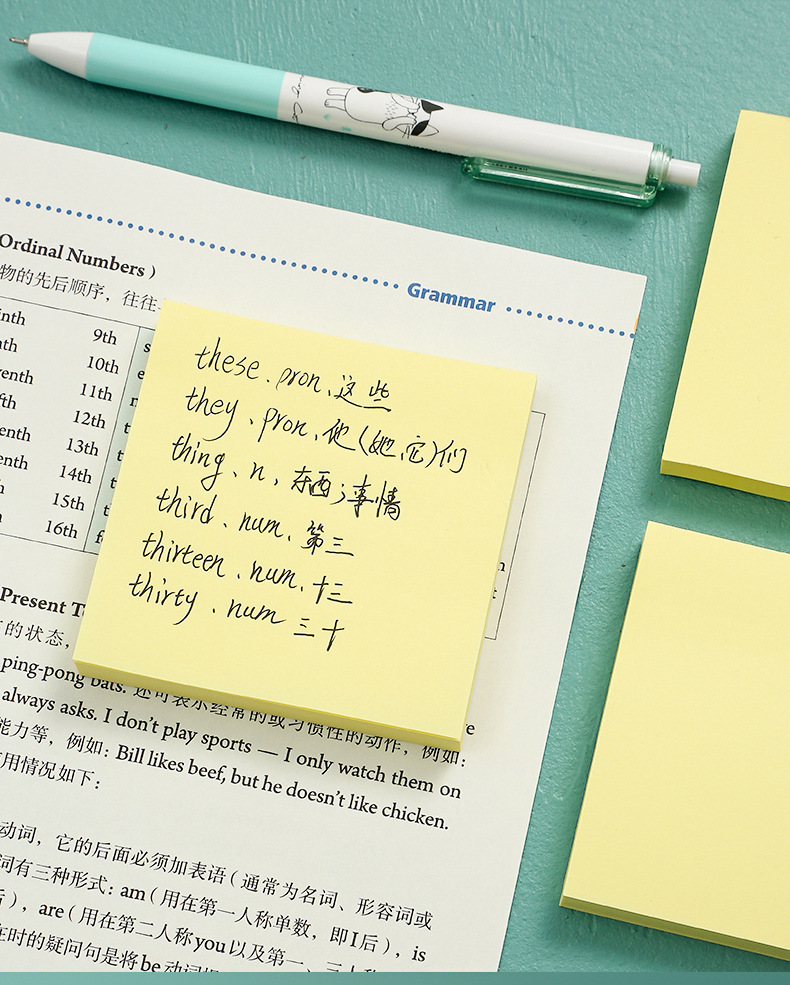 Ordinal Numbers）
物的先后顺序，往往
Grammar
inth 9th
nth 10th
venth 11th
fth 12th
eenth 13th
eenth 14th
15th
16th
these、pron、这些
they、pron、他（她、它）们
thing、n、东西；事情
third、num、第三
thirteen、num、十三
thirty、num 三十
Present T
的状态，
ping-pong bats. 还可表示经常的或习惯性的动作，例如：
always asks. I don't play sports — I only watch them on
能力等，例如：Bill likes beef, but he doesn't like chicken.
用情况如下：
动词，它的后面必须加表语（通常为名词、形容词或
词有三种形式：am（用在第一人称单数，即I后），is
后），are（用在第二人称you以及第一、三人称
在时的疑问句是将be动词